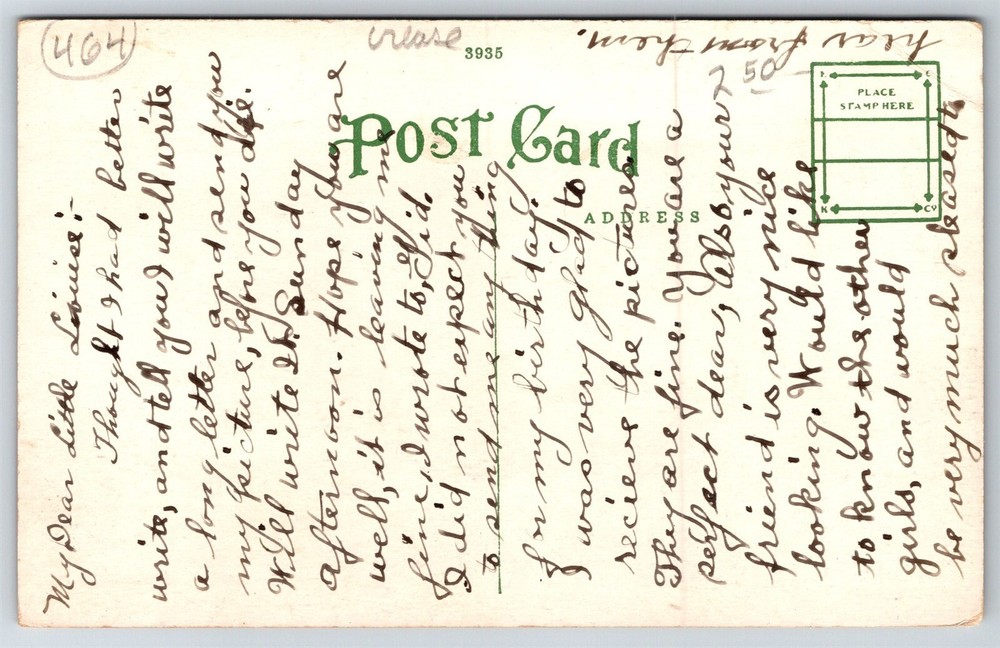 464
crease
3935
7 50
Post Card
ADDRESS
PLACE
STAMP HERE
My Dear Little Louise:-
Thought I had better
write, and tell you I will write
a long letter and send you
my picture, before you die.
Will write it Sunday
afternoon. Hope you are
well, it is leaving me
fine, I wrote to, Sid.
I did not expect you
to send me any thing
for my birthday.
I was very glad to
recieve the pictures
They are fine. You are a
perfect dear, Also your
friend is very nice
looking. Would like
to know the other
girls, and would
be very much pleased to
hear from them.